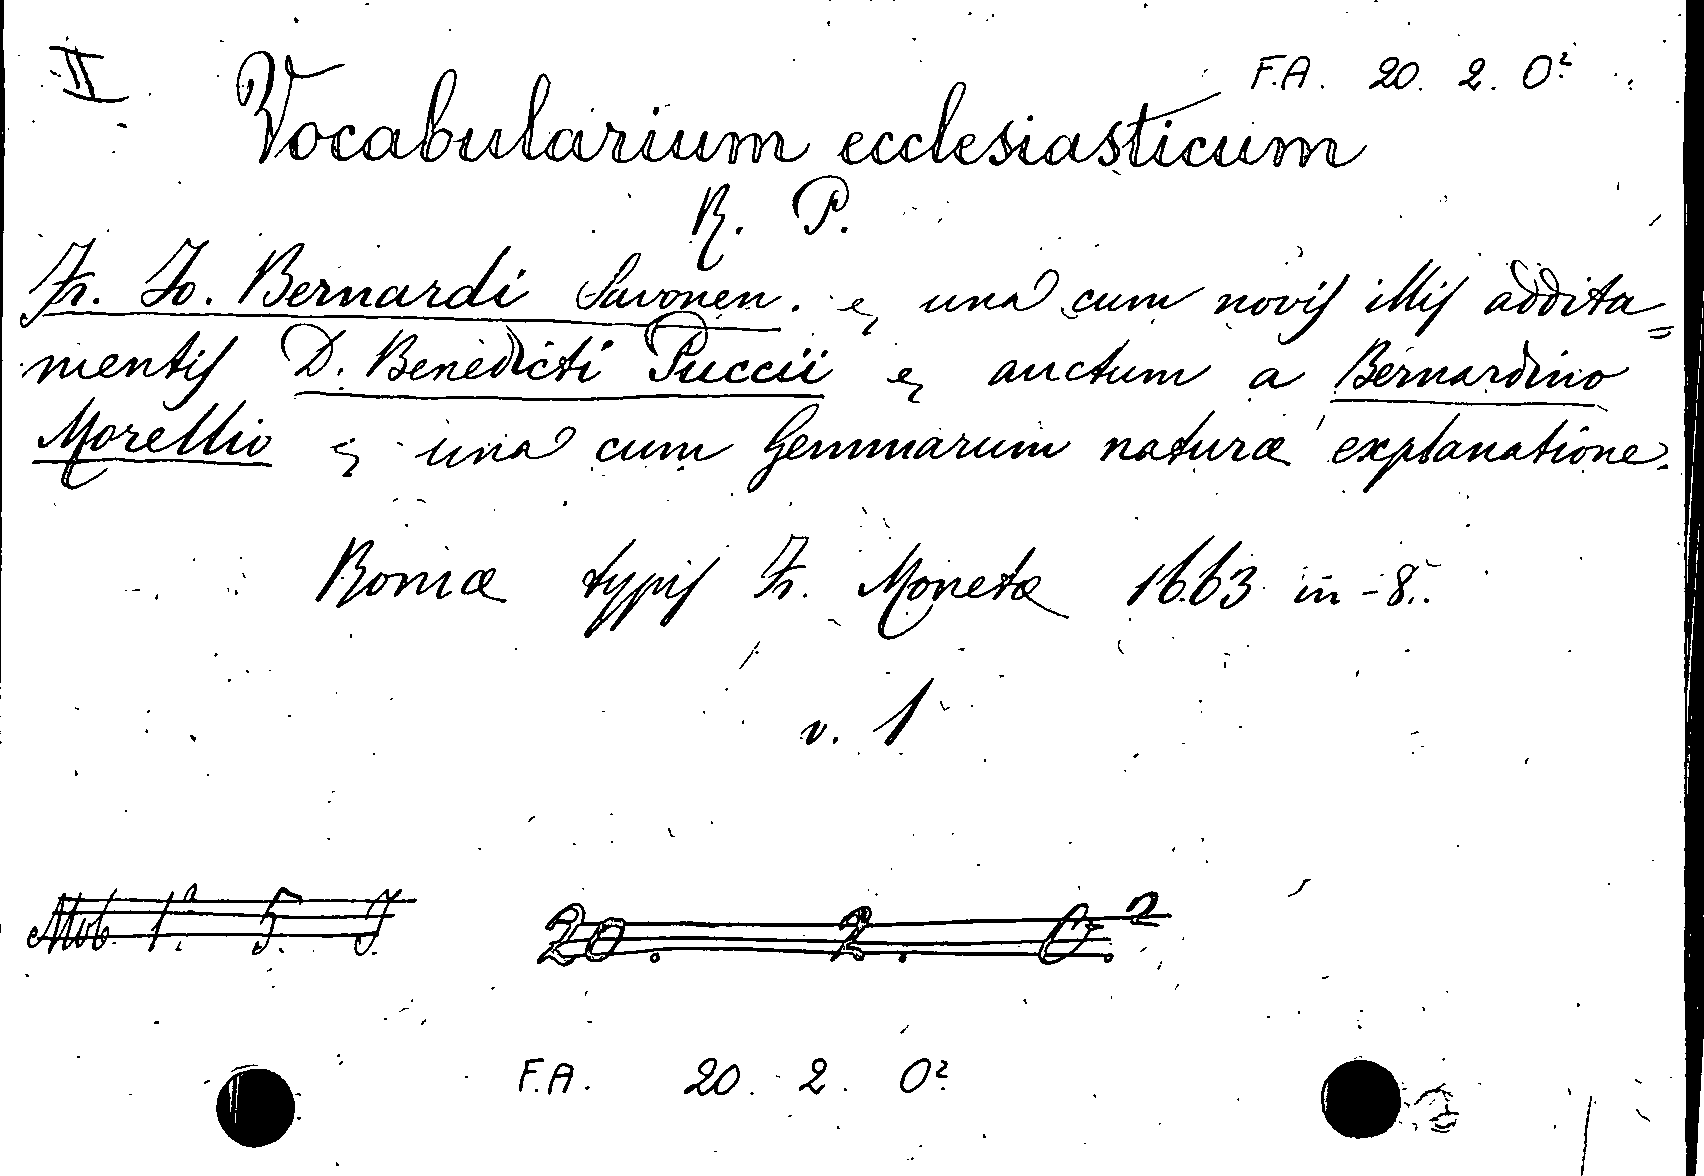 II
F.A. 20. 2. O²
Vocabularium ecclesiasticum
R. P.
Fr. Io. Bernardi Savonen. & una cum novis illis addita=
mentis D. Benedicti Puccii & auctum a Bernardino
Morellio & una cum Gemmarum naturæ explanatione.
Romæ typis Fr. Monetæ 1663 in-8.
v. 1
Mob. 1ª. 5. J.
20. 2. O.²
F.A. 20. 2. O²